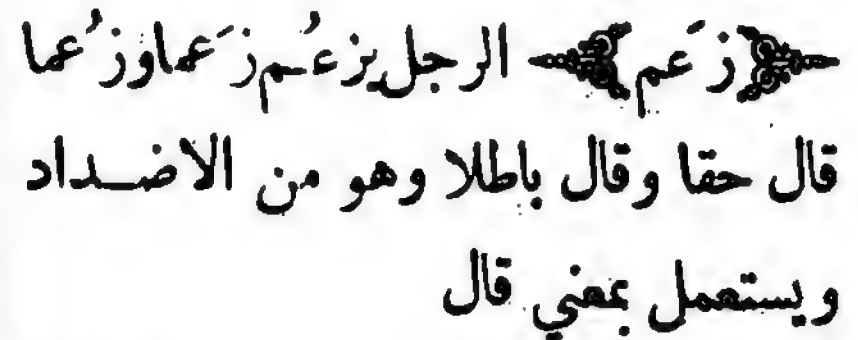 ﴿زَعم﴾ الرجل يزعُم زَعما وزُعما
قال حقا وقال باطلا وهو من الاضـداد
ويستعمل بمعني قال